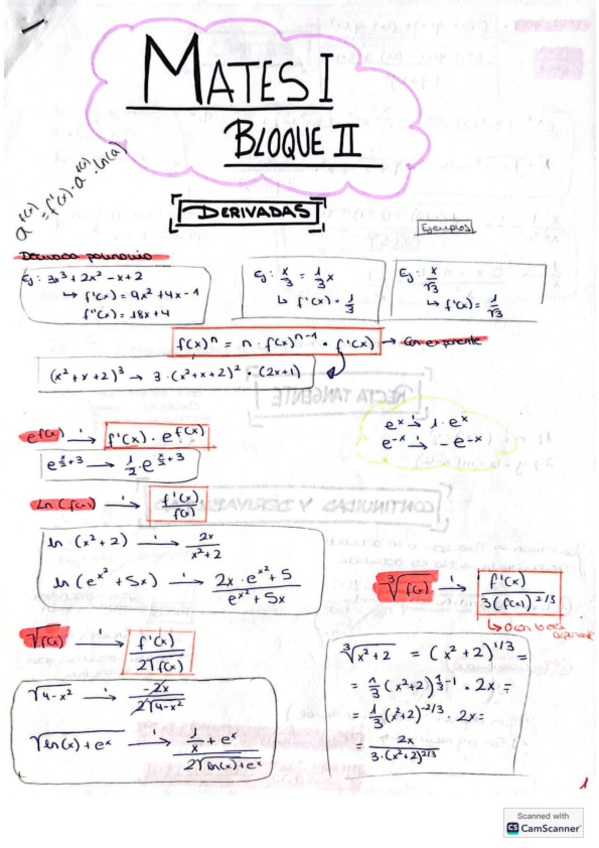 MATES I
BLOQUE II
a^f(x) = f'(x) · a^f(x) · ln(a)
DERIVADAS
Ejemplos
Derivada polinomio
Ej: 3x³ + 2x² - x + 2
↳ f'(x) = 9x² + 4x - 1
f''(x) = 18x + 4
Ej: x/3 = 1/3 x
↳ f'(x) = 1/3
Ej: x/√3
↳ f'(x) = 1/√3
f(x)^n = n · f(x)^n-1 · f'(x) → con exponente
(x² + x + 2)³ → 3 · (x² + x + 2)² · (2x + 1)
e^x → 1 · e^x
e^-x → - e^-x
e^f(x) → f'(x) · e^f(x)
e^x/2+3 → 1/2 · e^x/2+3
Ln (f(x)) → f'(x)/f(x)
ln (x² + 2) → 2x/x² + 2
ln (e^x² + 5x) → 2x · e^x² + 5/e^x² + 5x
³√f(x) → f'(x)/3(f(x))^2/3
√f(x) → f'(x)/2√f(x)
√4-x² → -2x/2√4-x²
√ln(x) + e^x → 1/x + e^x/2√ln(x) + e^x
³√x² + 2 = (x² + 2)^1/3 =
= 1/3 (x² + 2)^1/3 - 1 · 2x =
= 1/3 (x² + 2)^-2/3 · 2x =
= 2x/3 · (x² + 2)^2/3
1
Scanned with
CS CamScanner